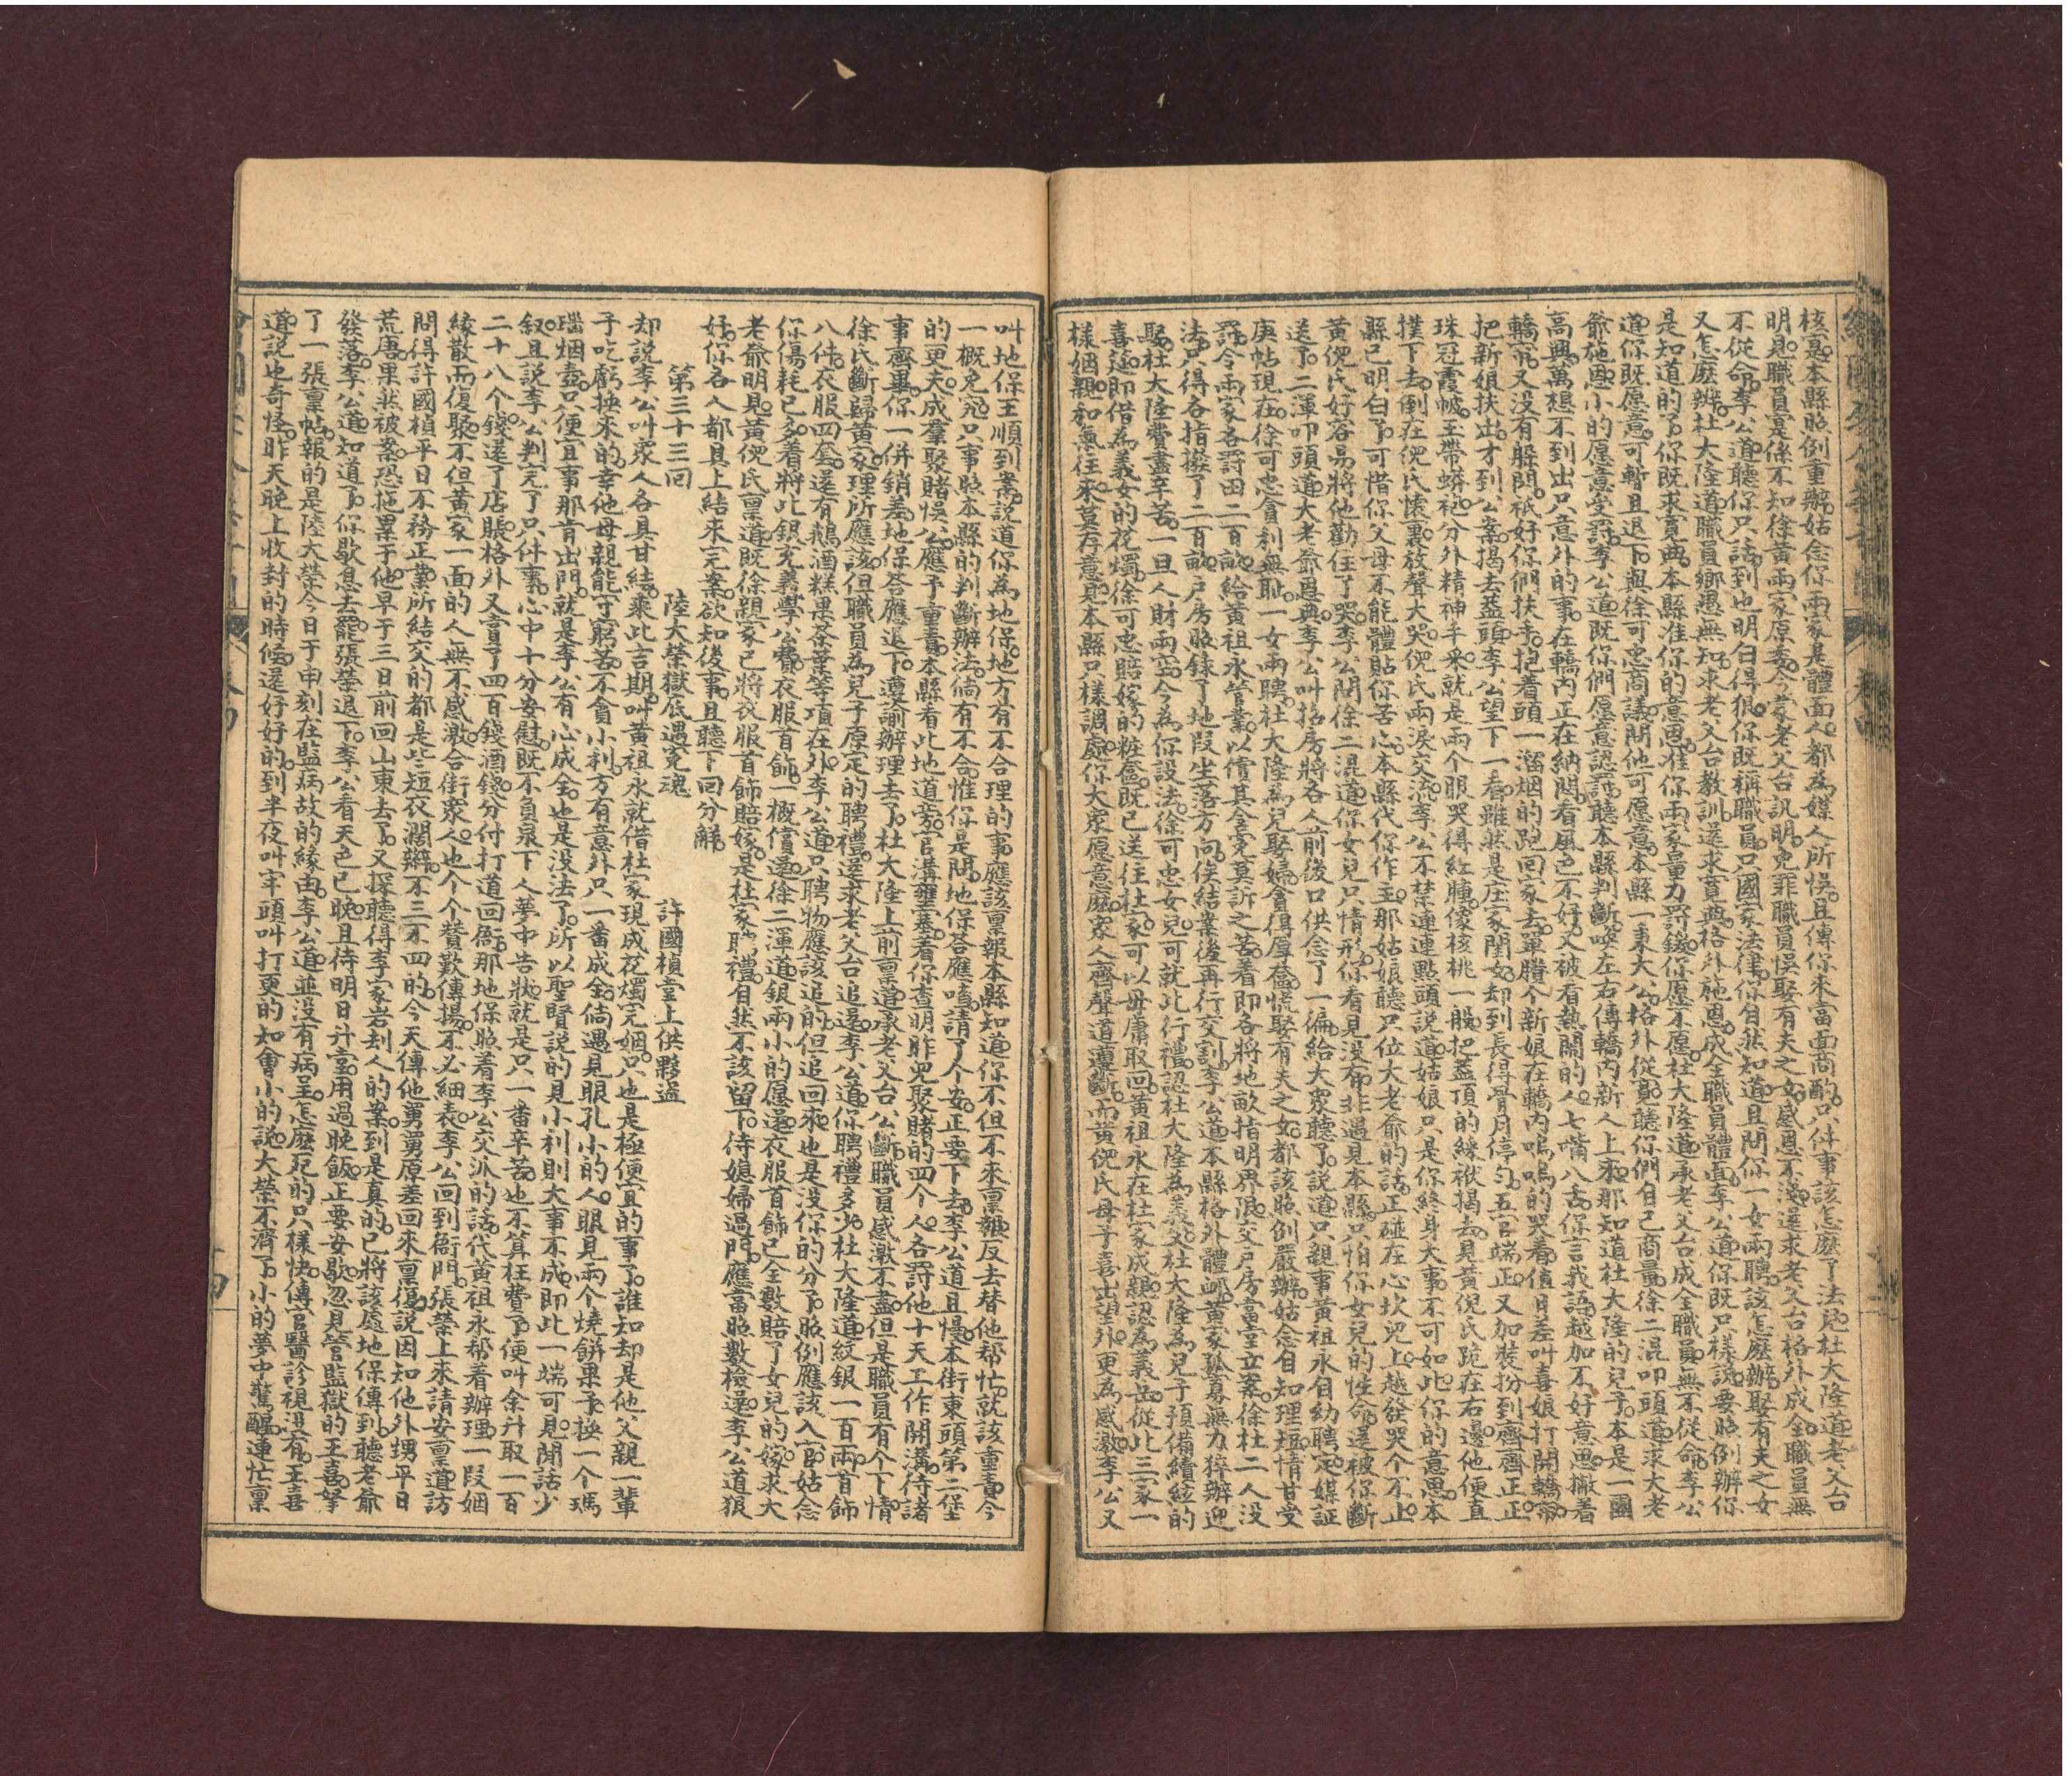 核。是本縣照例重辦姑念你兩家是體面人都為媒人所悞。且傳你來當面商酌。只件事該怎麽了法兒杜大隆道老父台
明見。職員寔係不知徐黄兩家原委。今蒙老父台訊明。免罪職員悞娶有夫之女感恩不淺。還求老父台格外成全職員無
不從命。李公道。聽你只話到也明白得狠。你既稱職員。只國家法律。你自然知道。且問你一女兩聘。該怎麽辦。娶有夫之女
又怎麽辦。杜大隆道職員鄉愚無知求老父台教訓。還求寬典。格外施恩。成全職員體面李公道你既只樣說要照例辦你
是知道的了。你既求寬典。本縣准你的意思。准你兩家量力罰鍰。你愿不愿。杜大隆道承老父台成全職員。無不從命李公
道你既愿意。可暫且退下。與徐可忠商議。問他可愿意。本縣一秉大公。格外從寬。聽你們自己商量。徐二混叩頭道求大老
爺施恩。小的愿意受罰。李公道。既你們愿意認罰。聽本縣判斷。喚左右傳轎內新人上來。那知道杜大隆的兒子。本是一團
高興。萬想不到出只意外的事。在轎內正在納悶。看風色不好。又被看熱鬧的人七嘴八舌。你言我語。越加不好意思。撇着
轎帘。又没有躲閃。祇好你們扶手。抱着頭。一溜烟的跑回家去。單賸个新娘在轎內嗚嗚的哭着。值日差叫喜娘打開轎帘
把新娘扶出。才到公案。揭去蓋頭。李公望下一看。雖然是庄家閨女。却到長得骨肉停勻。五官端正。又加裝扮到齊齊正正
珠冠霞帔。玉帶蟒袍。分外精神丰采。就是兩个眼哭得紅腫。像核桃一般。把蓋頂的綵袱揭去。見黃倪氏跪在右邊。他便直
撲下去。倒在倪氏懷裏。放聲大哭。倪氏兩淚交流。李公不禁連連點頭。說道。姑娘。只是你終身大事。不可如此。你的意思。本
縣已明白了。可惜你父母不能體貼你苦心。本縣代你作主。那姑娘聽只位大老爺的話。正碰在心坎兒上。越發哭个不止
黃倪氏好容易將他勸住了哭。李公問徐二混道。你女兒只情形。你看見没有。非遇見本縣。只怕你女兒的性命。還被你斷
送了。二渾叩頭道大老爺恩典。李公叫招房將各人前後口供念了一徧。給大眾聽了。說道。只親事黃祖永自幼聘定。媒証
庚帖現在。徐可忠貪利無恥。一女兩聘。杜大隆為兒娶婦。貪得厚奩。謊娶有夫之女。都該照例嚴辦。姑念自知理短。情甘受
罰。令兩家各罰田二百畝。給黃祖永管業。以償其含寃莫訴之苦。着即各將地畝指明界限。交戶房當堂立案。徐杜二人没
法。只得各指撥了二百畝。戶房照錄了地叚坐落方向。俟結案後再行交割。李公道。本縣格外體卹。黃家孤寡無力。猝辦迎
娶。杜大隆費盡辛苦。一旦人財兩空。今為你設法。徐可忠女兒可就此行禮。認杜大隆為義父。杜大隆為兒子預備續絃的
喜筵。即借為義女的花燭。徐可忠賠嫁的粧奩。既已送往杜家。可以毋庸取回。黃祖永在杜家成親。認為義岳。從此三家一
樣姻親。和氣往來。莫存意見。本縣只樣調處。你大衆愿意麽。衆人齊聲道遵斷。而黃倪氏母子。喜出望外。更為感激。李公又
叫地保王順到案。說道你為地保。地方有不合理的事。應該稟報本縣知道。你不但不來禀報。反去替他帮忙。就該重責。今
一概免究。只事照本縣的判斷辦法。倘有不合。惟你是問。地保答應喳。請了个安。正要下去。李公道。且慢。本街東頭第二堡
的更夫。成羣聚賭悞公。應予重責。本縣看此地道旁官溝壅塞。着你查明昨兒聚賭的四个人。各罰他十天工作開溝。待諸
事齊畢。你一併銷差。地保答應退下。遵諭辦理去了。杜大隆上前禀道。承老父台公斷。職員感激不盡。但是職員有个下情
徐氏斷歸黃家。理所應該。但職員為兒子原定的聘禮。還求老父台追還。李公道。你聘禮多少。杜大隆道。紋銀一百兩。首飾
八件。衣服四套。還有鵝酒糕果茶葉等項在外。李公道。只聘物應該追的。但追回來。也是没你的分了。照例應該入官。姑念
你傷耗已多。着將此銀充義學公費。衣服首飾。一概償還。徐二渾道。銀兩小的愿還。衣服首飾。已全數賠了女兒的嫁。求大
老爺明見。黃倪氏禀道。既徐親家已將衣服首飾賠嫁。是杜家聘禮。自然不該留下。待媳婦過門。應當照數檢還。李公道狠
好。你各人都具上結來完案。欲知後事。且聽下回分解。
第三十三回　陸大榮獄底遇寃魂　許國楨堂上供夥盜
却說李公叫衆人各具甘結。乘此吉期。叫黃祖永就借杜家現成花燭完姻。只也是極便宜的事了。誰知却是他父親一輩
子吃虧換來的。幸他母親能守窮苦。不貪小利。方有意外只一番成全。倘遇見眼孔小的人。眼見兩个燒餅果子。換一个瑪
瑙烟壺。只便宜事那肯出門。就是李公有心成全。也是没法了。所以聖賢說的見小利則大事不成。即此一端可見。閒話少
叙。且說李公判完了只件事。心中十分安慰。既不負泉下人夢中告狀。就是只一番辛苦。也不算枉費了。便叫余升取一百
二十八个錢。還了店賬。格外又賞了四百錢酒錢。分付打道回衙。那地保照着李公交派的話。代黃祖永帮着辦理。一叚姻
緣。散而復聚。不但黃家一面的人。無不感激。合街衆人。也个个贊歎傳揚。不必細表。李公回到衙門。張榮上來請安。禀道。訪
問得許國楨平日不務正業。所結交的都是些短衣濶辮。不三不四的。今天傳他舅舅。原差回來禀復。說因知他外甥平日
荒唐。果然被案。恐拖累于他。早于三日前回山東去了。又探聽得李家岩刦人的案。到是真的。已將該處地保傳到。聽老爺
發落。李公道。知道了。你歇息去罷。張榮退下。李公看天色已晚。且待明日升堂。用過晚飯。正要安歇。忽見管監獄的王喜。拏
了一張禀帖。報的是陸大榮今日于申刻在監病故的緣由。李公道。並没有病呈。怎麽死的只樣快。傳官醫診視没有。王喜
道。說也奇怪。昨天晚上收封的時候。還好好的。到半夜叫牢頭叫打更的知會小的說。大榮不濟了。小的夢中驚醒。連忙禀